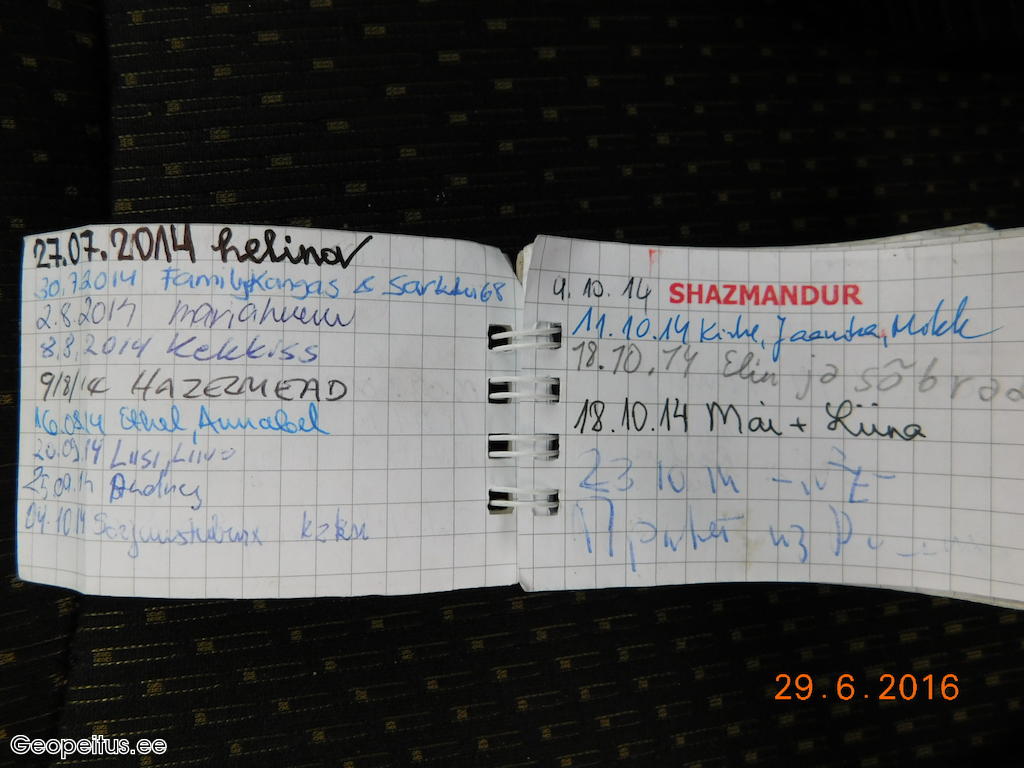 27.07.2014 helinav
30.7.2014 Family Kangas & Sarkku68
2.8.2014
8.8.2014 Kekkiss
9/8/14 HAZELMEAD
16.08.14 Ethel, Annabel
20.09.14 Liisi, Liivo
25.09.14
04.10.14 kzkn
4.10.14 SHAZMANDUR
11.10.14 Kirke, Jaanika, Mikk
18.10.14 Elin ja sõbrad
18.10.14 Mai + Liina
23 10 14
Привет из
29.6.2016
Geopeitus.ee